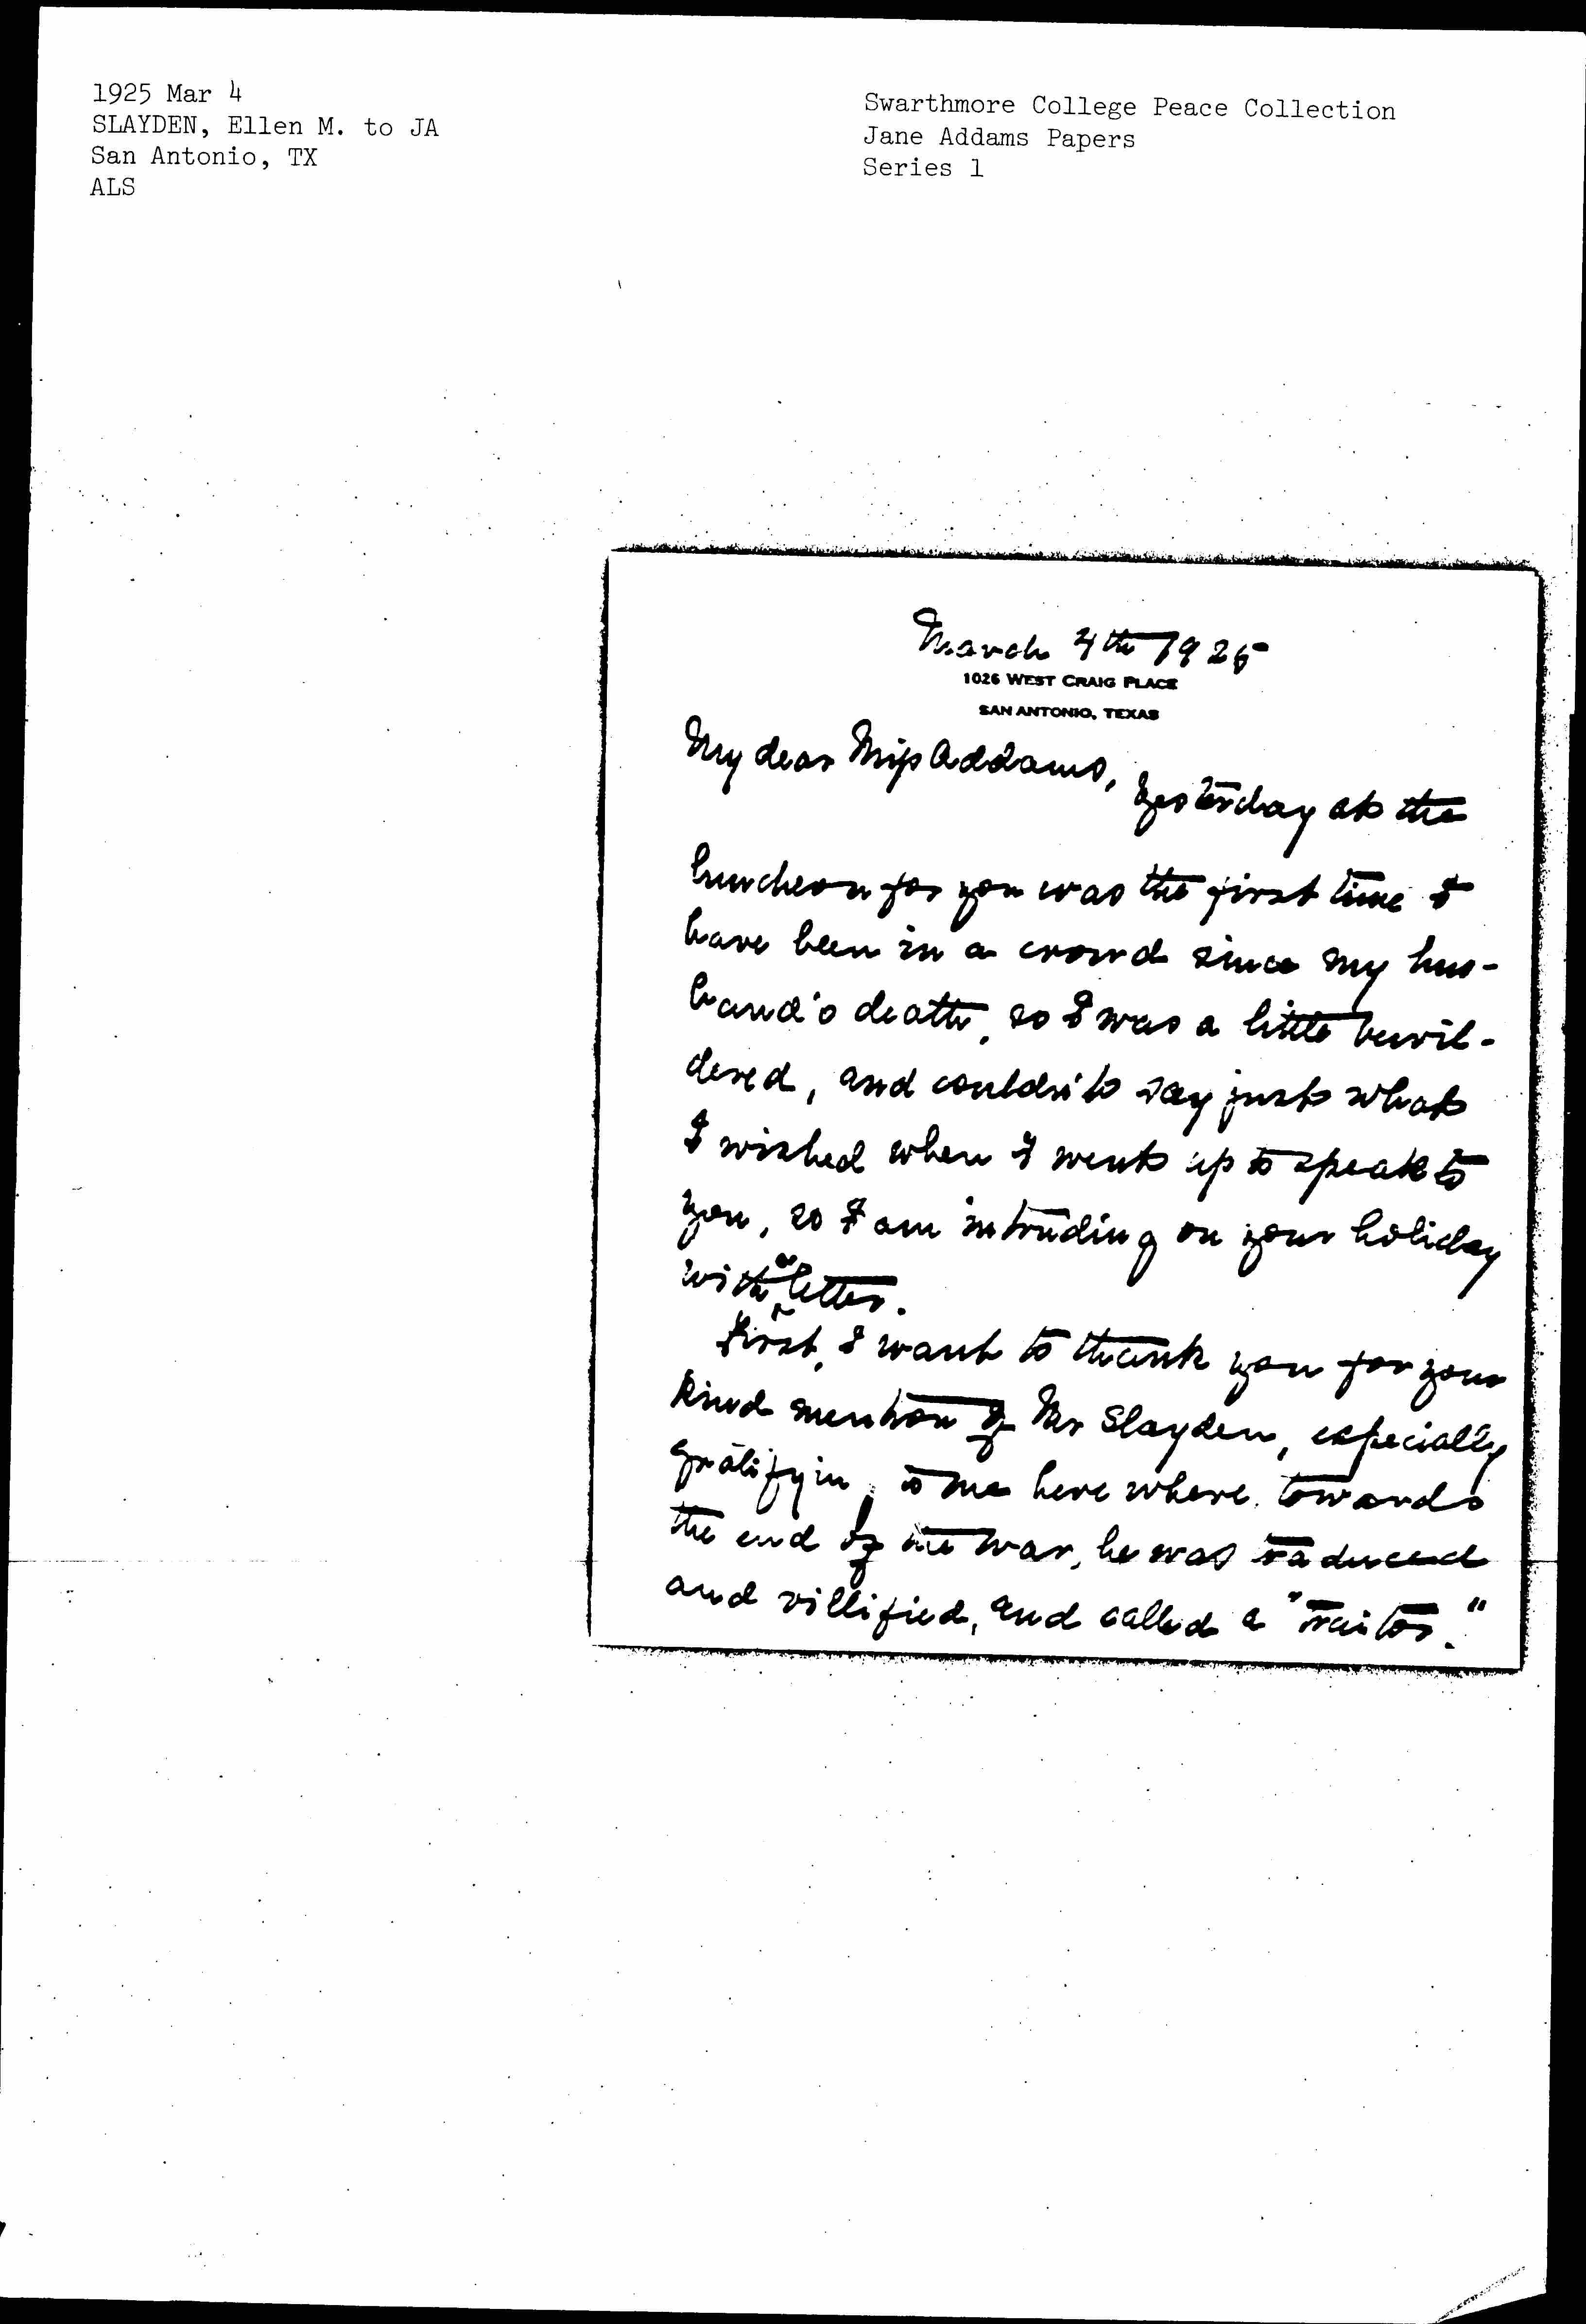 1925 Mar 4
SLAYDEN, Ellen M. to JA
San Antonio, TX
ALS
Swarthmore College Peace Collection
Jane Addams Papers
Series 1
March 4th 1925
1026 WEST CRAIG PLACE
SAN ANTONIO, TEXAS
My dear Miss Addams,
Yesterday at the
luncheon for you was the first time I
have been in a crowd since my hus-
band's death, so I was a little bewil-
dered, and couldn't say just what
I wished when I went up to speak to
you, so I am intruding on your holiday
with a letter.
First, I want to thank you for your
kind mention of Mr Slayden, especially
gratifying to me here where, towards
the end of the war, he was traduced
and villified, and called a "traitor."